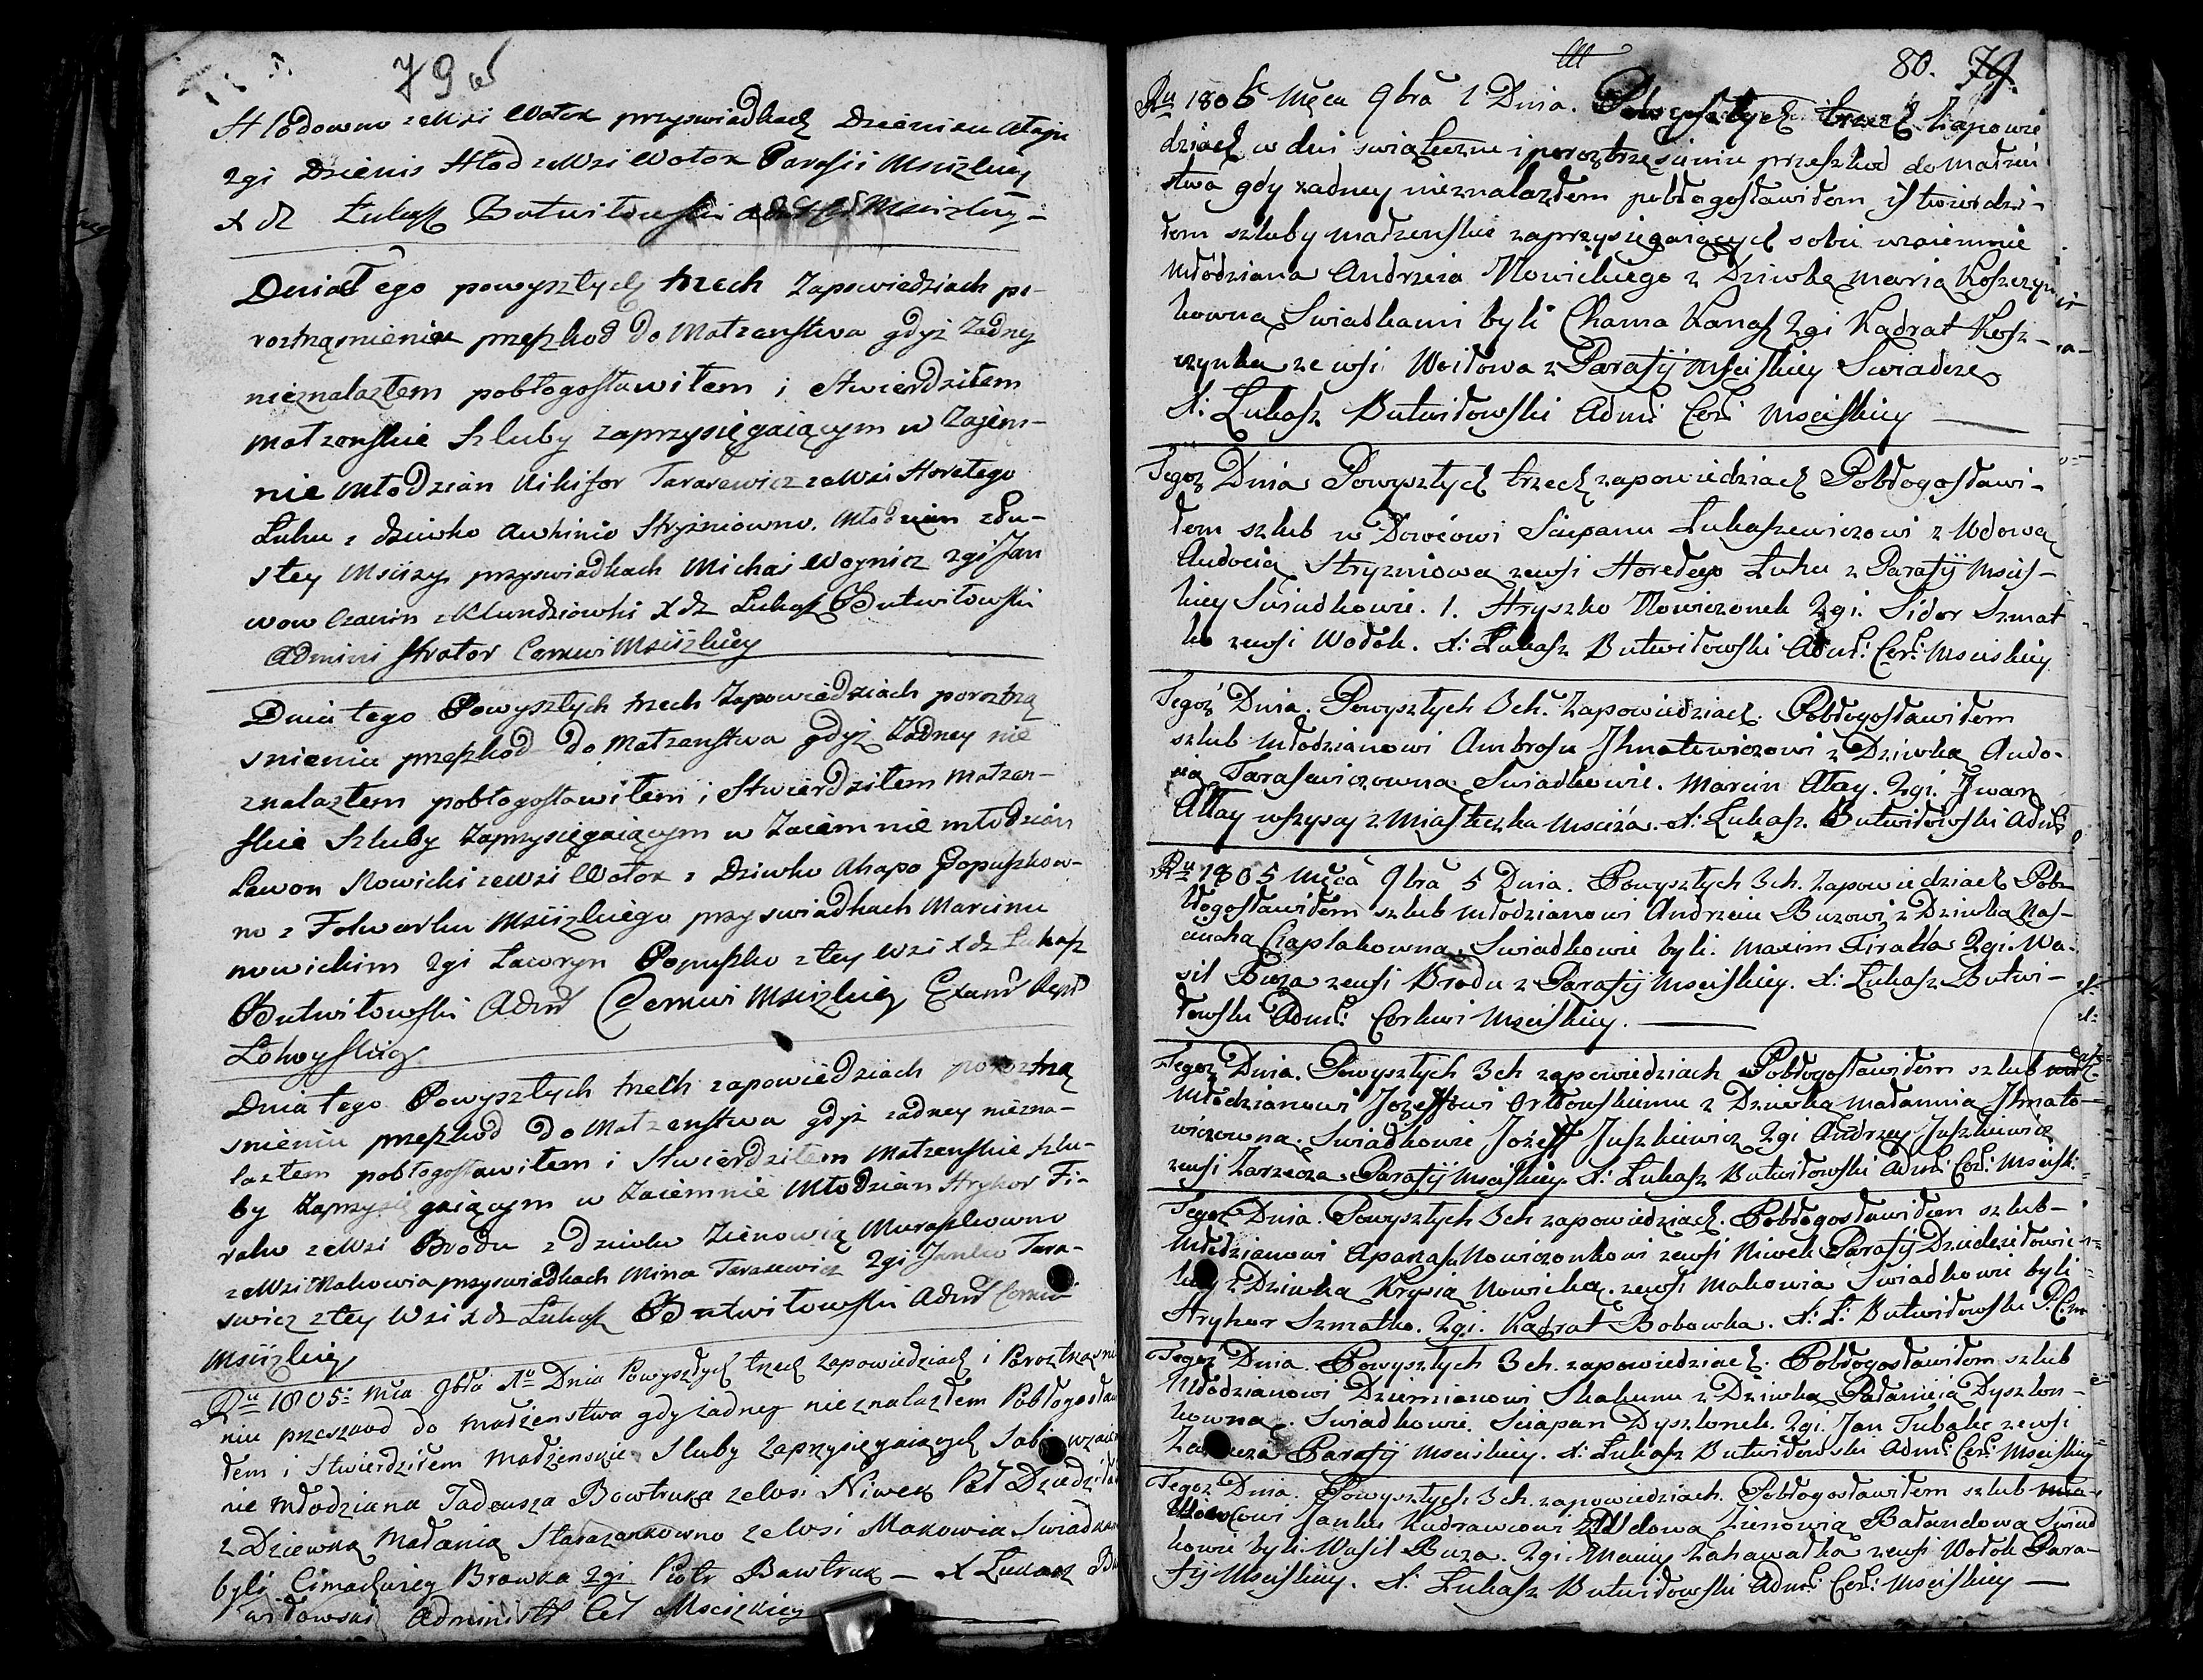 79
Hłodowno ze Wsi Wołok przy swiadkach Dzienisu Ałaju
2gi Dzienis Hłod ze Wsi Wołok Parafii Msciżkiey
X dz Łukasz Butwiłowski Msciżkiey
Dnia Tego powyszłych trzech Zapowiedziach po-
roztrząsnieniu przeszkod do Małzenstwa gdyż Zadney
nieznalazłem pobłogosławiłem i Stwierdziłem
małzenskie Szluby zaprzysięgaiącym w Zajem-
nie Młodzian Nikifor Tarasewicz ze Wsi Horełego
Łuhu z dziewko Awhinio Stryżniowno. Młodzian z Łu-
stey Msciży przyswiadkach Michaś Woynicz 2gi Jan
wow z Klundziowki X dz Łukasz Butwiłowski
Administrator Cerkwi Msciżkiey
Dnia tego Powyszłych trzech Zapowiedziach poroztrzą
snieniu przeszkod do Małzanstwa gdyż Zadney nie
znalazłem pobłogosławiłem i Stwierdziłem Małzen-
skie Szluby Zaprzysięgaiącym w Zaiemnie młodzian
Lewon Nowicki ze Wsi Wołok z Dziewko Ahapo Popuszkow-
no z Folwarku Msciżkiego przy swiadkach Marcinu
nowickim 2gi Ławryn Popuszko z tey Wsi X dz Łukasz
Butwiłowski Adm Cerkwi Msciżkiey
Łohoyskiey
Dnia tego Powyszłych trzech zapowiedziach poroztrzą
snieniu przeszkod do Małzenstwa gdyż zadney niezna-
lazłem pobłogosławiłem i Stwierdziłem Małzenskie szlu-
by Zaprzysięgaiącym w Zaiemnie Młodzian Hryhor Fi-
rału ze Wsi Brodu z dziewko Zienowią Muraszkowno
ze Wsi Makowia przyswiadkach Mina Tarasewicz 2gi Janko Tara-
sewicz z tey Wsi X dz Łukasz Butwiłowski Adm Cerkwi
Msciżkiey
Ru 1805 Mca 9bra 1o Dnia Powyszłych trzech zapowiedziach i Poroztrząsnie
niu przeszkod do małżenstwa gdy żadney nieznalazłem Pobłogosławi
łem i Stwierdziłem małżenskie Sluby zaprzysięgaiących Sobie wzaiem
nie Młodziana Tadeusza Bowtruka ze Wsi Niwek Par Dziedziłow
z Dziewką Małanią Starazankowno ze Wsi Makowia Swiadkami
byli Cimachwiey Browka 2gi Piotr Bawtruk — X Łukasz But
wiłowski Administr Cer Msciżkiey
80. 79.
Ru 1805 Męca 9bra 1 Dnia. Powyszłych trzech Zapowie
dziach w dni swiąteczne i poroztrzęsieniu przeszkod do Małżeń
stwa gdy żadney nieznalazłem pobłogosławiłem y stwierdzi-
łem szluby małzenskie zaprzysięgaiących sobie wzaiemnie
Młodziana Andrzeia Nowickiego z Dziewką Marią Koszczyn
kowną Swiadkami byli Chama Kanasz 2gi Kądrat Kosz-
czynka ze wsi Woiłowa z Parafij Msciskiey Swiadczę
X: Łukasz Butwiłowski Adm: Cer: Msciskiey
Tegoz Dnia Powyszłych trzech zapowiedziach Pobłogosławi-
łem szlub w Dowcowi Sciepanu Łukaszewiczowi z Wdową
Audocią Stryzniową ze wsi Horełego Łuhu z Parafij Mscis-
kiey Swiadkowie. 1. Hryszko Nowiczonek 2gi. Sidor Szmat
ko ze wsi Wołok. X: Łukasz Butwiłowski Adm: Cer: Msciskiey
Tegoż Dnia. Powyszłych 3ch. Zapowiedziach. Pobłogosławiłem
szlub młodzianowi Ambrosu Ihnatowiczowi z Dziewką Audo-
cią Tarasewiczowną Swiadkowie. Marcin Ałay. 2gi. Iwan
Ałłay wszyscy z Miasteczka Msciża. X: Łukasz. Butwiłowski Adm:
Ru 1805 Męca 9bra 5 Dnia. Powyszłych 3ch. Zapowiedziach Pob-
łogosławiłem szlub młodzianowi Andrzeiu Buzowi z Dziewką Nas-
Czaplakowną. Swiadkowie byli. Maxim Firałła 2gi. Wa-
sil Buza ze wsi Brodu z Parafij Msciskiey. X: Łukasz Butwi-
łowski Adm: Cerkwi Msciskiey.
Tegoz Dnia. Powyszłych 3ch zapowiedziach Pobłogosławiłem szlub
Młodzianowi Jozeffowi Orłowskiemu z Dziewką Małannią Ihnato-
wiczowną. Swiadkowie Jożeff Juszkiewicz 2gi Andrzey Juszkiewicz
ze wsi Zarzecza Parafij Msciskiey. X: Łukasz Butwiłowski Adm: Cer: Mscisk:
Tegoż Dnia. Powyszłych 3ch zapowiedziach. Pobłogosławiłem szlub-
Młodzianowi Apanasu Nowiczonkowi ze wsi Niwek Parafij Dziedziłowic-
kiey z Dziewką Krysią Nowicką. ze wsi Makowia Swiadkowie byli
Hryhor Szmatko. 2gi. Kądrat Bobowka. X: Ł: Butwiłowski
Tegoż Dnia. Powyszłych 3ch. zapowiedziach. Pobłogosławiłem szlub
Młodzianowi Dziemianowi Skakunu z Dziewką Pałanieią Dyszlon-
kowną. Swiadkowie. Sciapan Dyszlonek. 2gi. Jan Tubałec ze wsi
Zarzecza Parafij Msciskiey. X: Łukasz Butwiłowski Adm: Cer: Msciskiey
Tegoz Dnia. Powyszłych 3ch. zapowiedziach. Pobłogosławiłem szlub
Wdowcowi Janku Kudrawcowi z Wdową Zienowią Bałandową Swiad
kowie byli Wasil Buza. 2gi. Maciey Zahawałka ze wsi Wołok Para-
fij Msciskiey. X: Łukasz Butwiłowski Adm: Cer: Msciskiey —